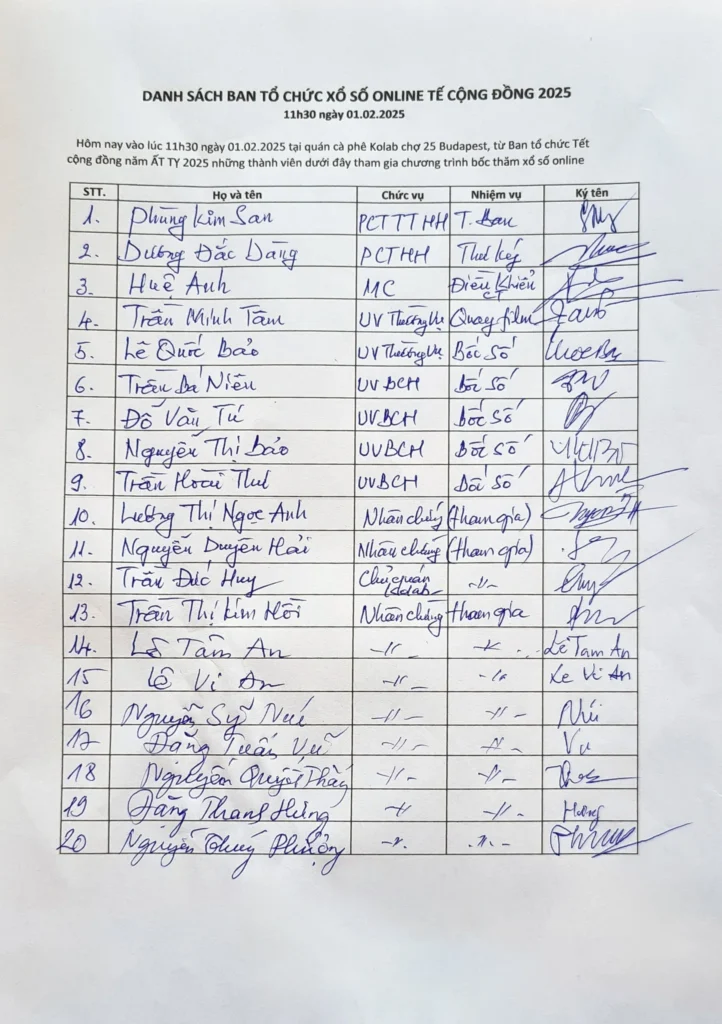 DANH SÁCH BAN TỔ CHỨC XỔ SỐ ONLINE TẾ CỘNG ĐỒNG 2025
11h30 ngày 01.02.2025
Hôm nay vào lúc 11h30 ngày 01.02.2025 tại quán cà phê Kolab chợ 25 Budapest, từ Ban tổ chức Tết
cộng đồng năm ẤT TỴ 2025 những thành viên dưới đây tham gia chương trình bốc thăm xổ số online
STT. Họ và tên Chức vụ Nhiệm vụ Ký tên
1. Phùng Kim San PCTTTHH T. Ban
2. Dương Đắc Dàng PCTHH Thư ký
3. Huệ Anh MC Điều khiển CT
4. Trần Minh Tâm UV Thường Vụ Quay film
5. Lê Quốc Bảo UV Thường Vụ Bốc Số
6. Trần Bá Niên UVBCH Bốc Số
7. Đỗ Văn Tứ UVBCH Bốc Số
8. Nguyễn Thị Bảo UVBCH Bốc Số
9. Trần Hoài Thư UVBCH Bốc Số
10. Lương Thị Ngọc Anh Nhân chứng (tham gia)
11. Nguyễn Duyên Hải Nhân chứng (tham gia)
12. Trần Đức Huy Chủ quán Kolab -//-
13. Trần Thị Kim Hồi Nhân chứng tham gia
14. Lê Tâm An -//- -//- Lê Tam An
15 Lê Vi An -//- -//- Le Vi An
16 Nguyễn Sỹ Núi -//- -//- Núi
17 Đặng Tuấn Vũ -//- -//- Vu
18 Nguyễn Quyết Thắng -//- -//-
19 Đặng Thanh Hưng -//- -//- Hưng
20 Nguyễn Thuý Phượng -//- -//-